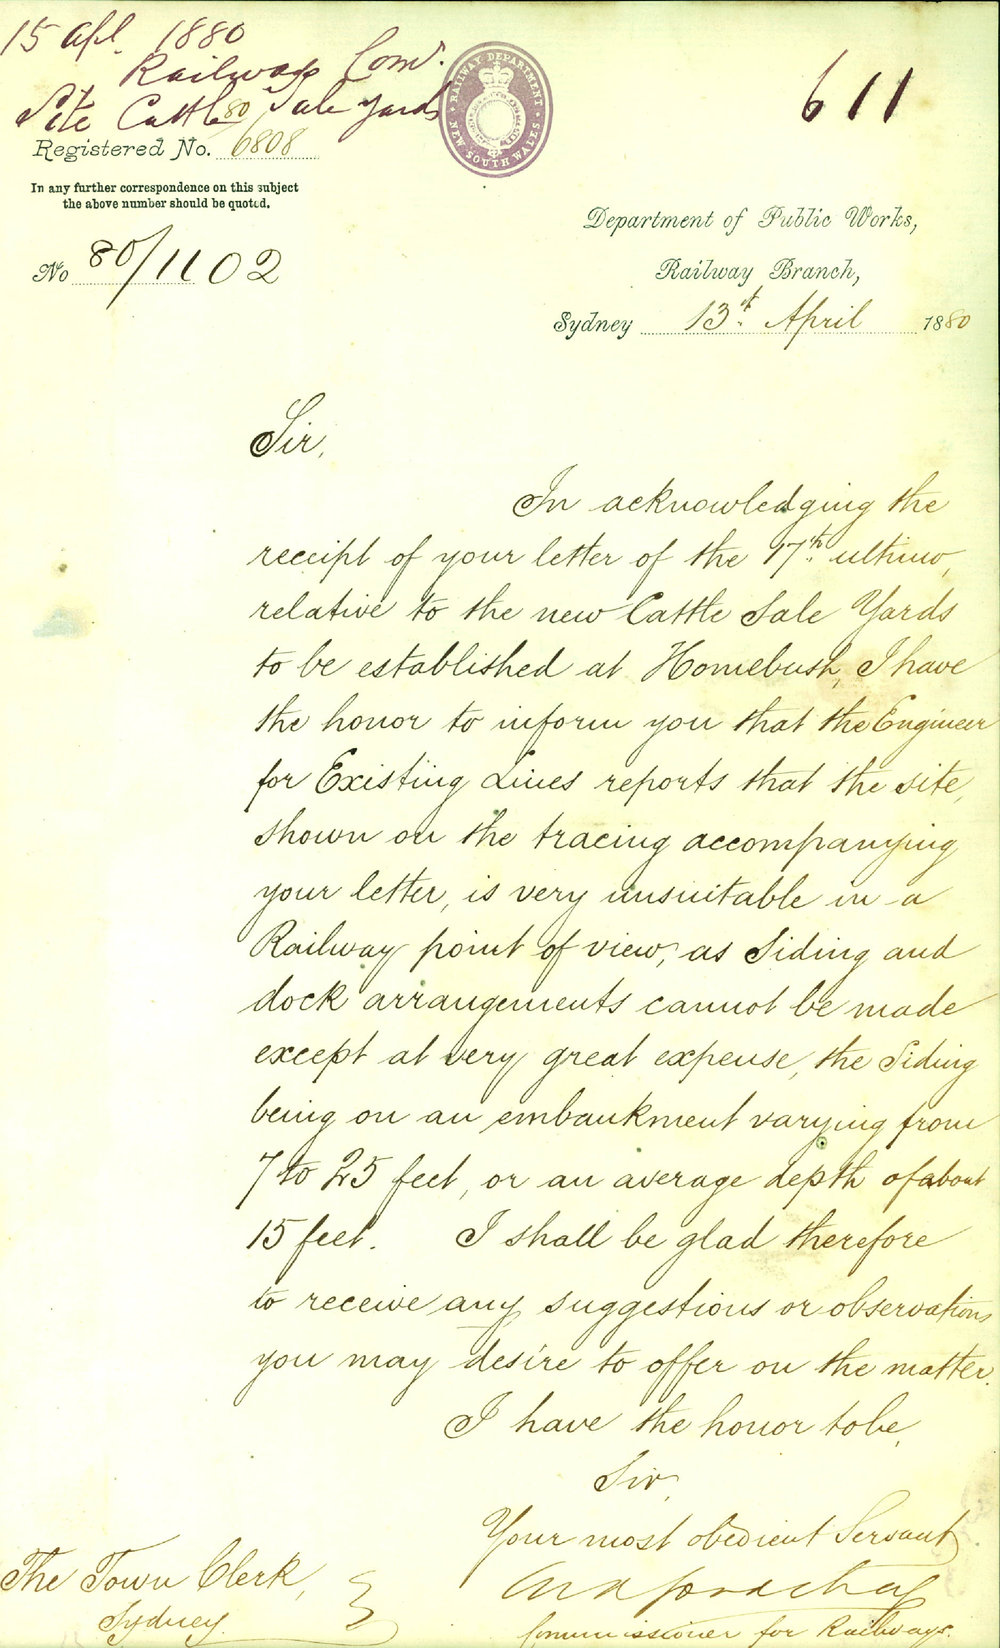 15 Apl. 1880
Railway Com.r
Site Cattle Sale Yards
80
Registered No. 6808
In any further correspondence on this subject
the above number should be quoted.
No 80/1102
RAILWAY DEPARTMENT
NEW SOUTH WALES
611
Department of Public Works,
Railway Branch,
Sydney 13th April 1880
Sir,
In acknowledging the
receipt of your letter of the 17th ultimo,
relative to the new Cattle Sale Yards
to be established at Homebush, I have
the honor to inform you that the Engineer
for Existing Lines reports that the site,
shown on the tracing accompanying
your letter, is very unsuitable in a
Railway point of view, as Siding and
dock arrangements cannot be made
except at very great expense, the Siding
being on an embankment varying from
7 to 25 feet, or an average depth of about
15 feet. I shall be glad therefore
to receive any suggestions or observations
you may desire to offer on the matter.
I have the honor to be,
Sir,
Your most obedient Servant
Commissioner for Railways.
The Town Clerk,
Sydney